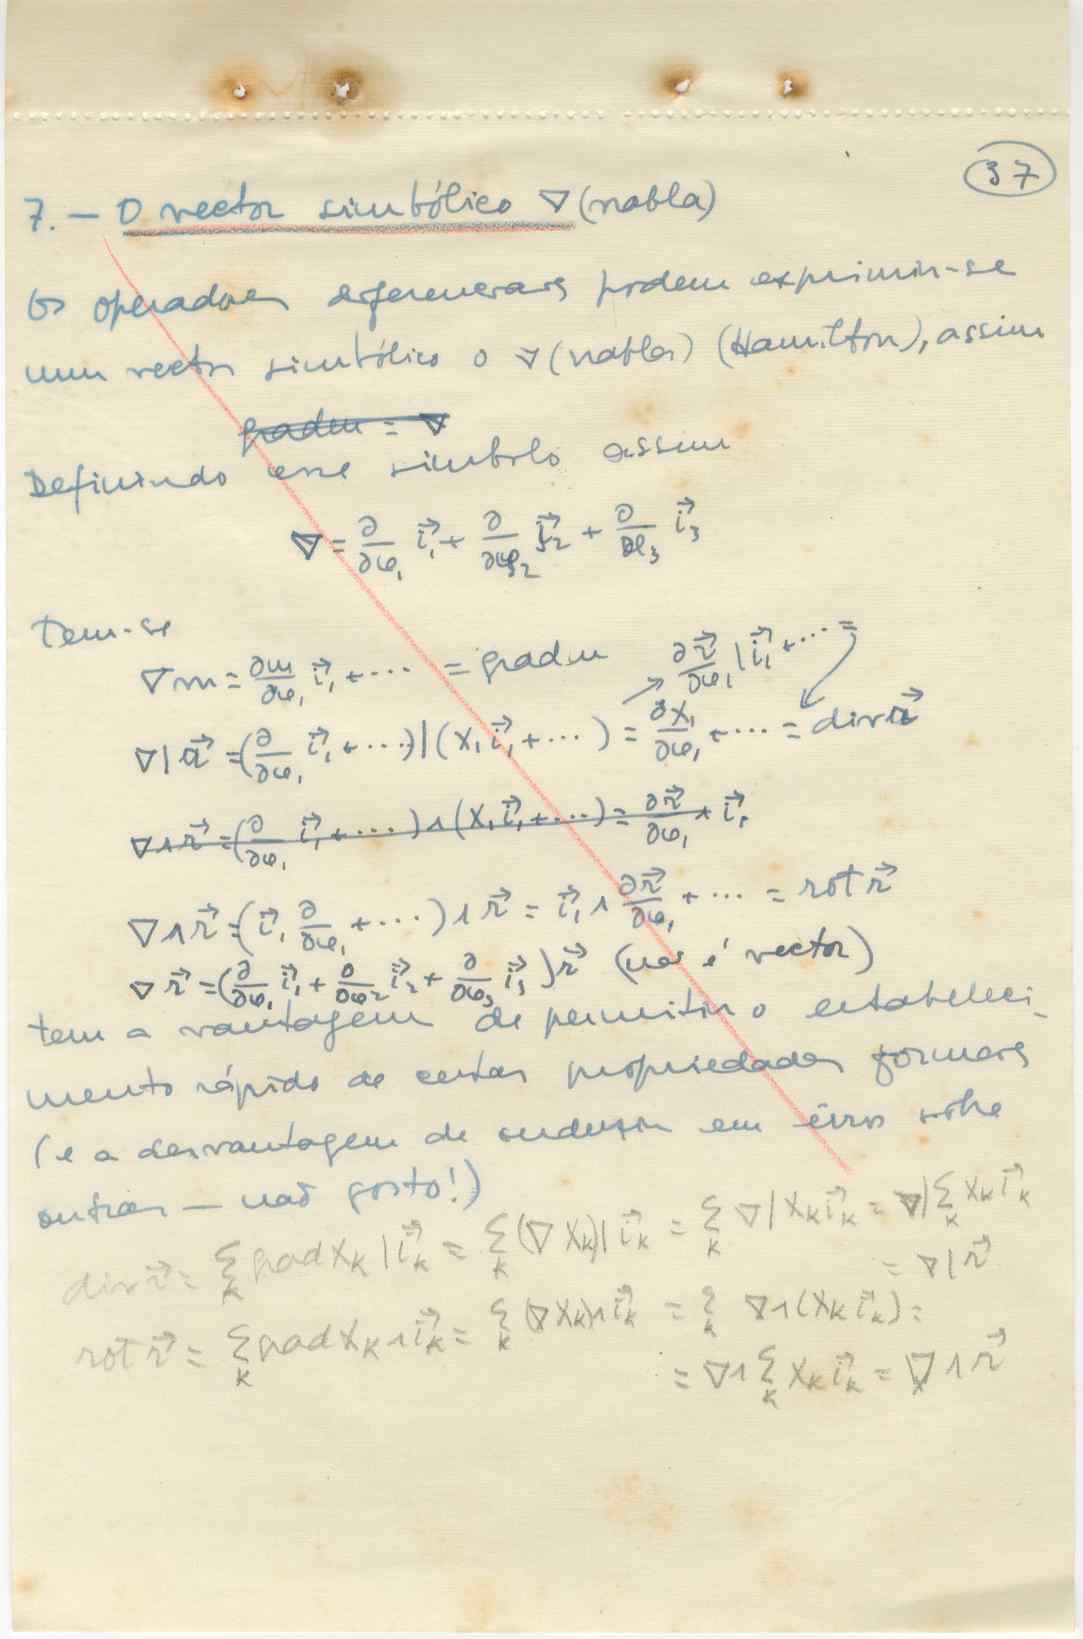 37
7. — O vector simbólico ∇ (nabla)
Os operadores diferenciais podem exprimir-se
num vector simbólico o ∇ (nabla) (Hamilton), assim
grad m = ∇
Definindo esse símbolo assim
∇ = ∂/∂φ₁ i⃗₁ + ∂/∂φ₂ i⃗₂ + ∂/∂φ₃ i⃗₃
Tem-se
∇m = ∂m/∂φ₁ i⃗₁ + ··· = grad m
∂r⃗/∂φ₁ | i⃗₁ + ··· =
∇|r⃗ = (∂/∂φ₁ i⃗₁ + ···) | (X₁ i⃗₁ + ···) = ∂X₁/∂φ₁ + ··· = div r⃗
∇∧r⃗ = (∂/∂φ₁ i⃗₁ + ···) ∧ (X₁ i⃗₁ + ···) = ∂r⃗/∂φ₁ ∧ i⃗₁
∇∧r⃗ = (i⃗₁ ∂/∂φ₁ + ···) ∧ r⃗ = i⃗₁ ∧ ∂r⃗/∂φ₁ + ··· = rot r⃗
∇r⃗ = (∂/∂φ₁ i⃗₁ + ∂/∂φ₂ i⃗₂ + ∂/∂φ₃ i⃗₃) r⃗ (não é vector)
tem a vantagem de permitir o estabeleci-
mento rápido de certas propriedades formais
(e a desvantagem de induzir em êrros sôbre
outras — não gosto!)
div r⃗ = Σₖ grad Xₖ | i⃗ₖ = Σₖ (∇Xₖ) | i⃗ₖ = Σₖ ∇ | Xₖ i⃗ₖ = ∇ | Σₖ Xₖ i⃗ₖ
= ∇ | r⃗
rot r⃗ = Σₖ grad Xₖ ∧ i⃗ₖ = Σₖ (∇Xₖ) ∧ i⃗ₖ = Σₖ ∇∧(Xₖ i⃗ₖ) =
= ∇∧ Σₖ Xₖ i⃗ₖ = ∇ ∧ r⃗